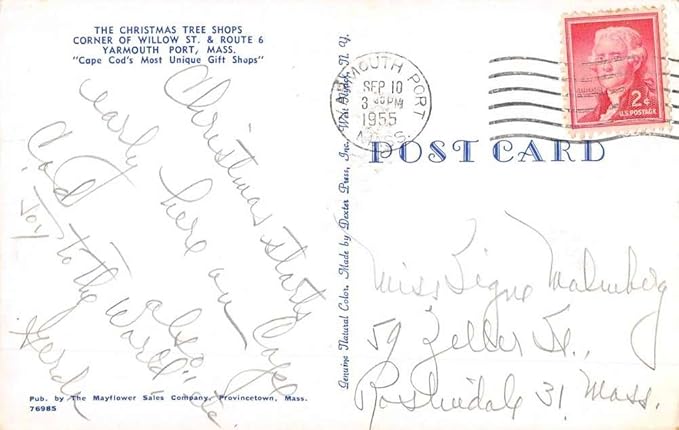 THE CHRISTMAS TREE SHOPS
CORNER OF WILLOW ST. & ROUTE 6
YARMOUTH PORT, MASS.
"Cape Cod's Most Unique Gift Shops"
Christmas starts
early here on Cape
Cod also
"Joy to the World" etc.
Gerda
Pub. by The Mayflower Sales Company, Provincetown, Mass.
76985
Genuine Natural Color. Made by Dexter Press, Inc., West Nyack, N. Y.
YARMOUTH PORT
SEP 10
3 PM
1955
MASS.
2¢
U.S. POSTAGE
POST CARD
Miss Signe Malmberg
59 Zeller St.,
Roslindale 31, Mass.